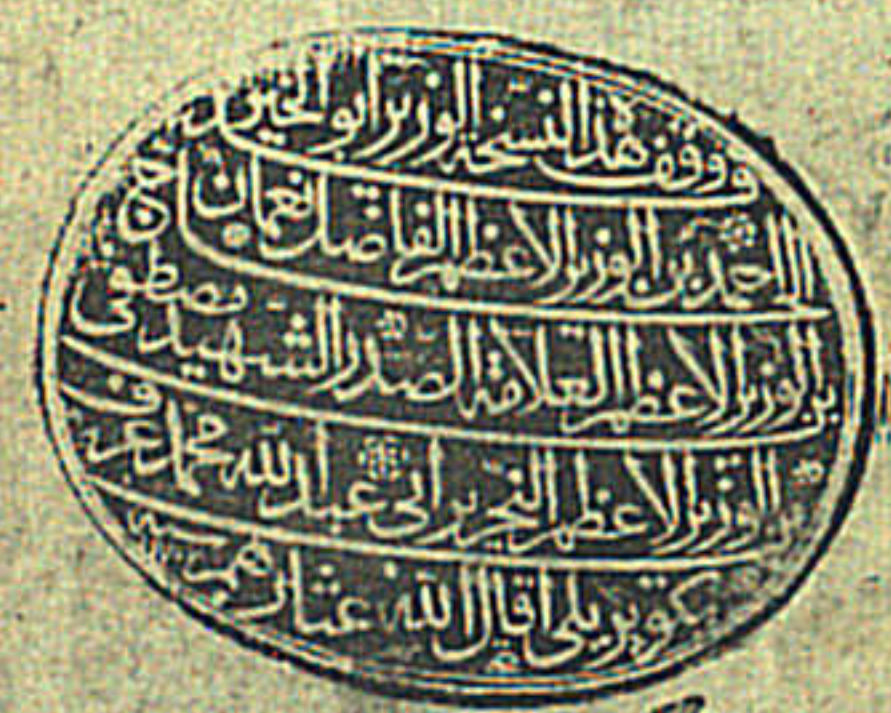 وقف هذا النسخة الوزير ابو الخير
الحاج احمد بن الوزير الاعظم الفاضل نعمان
بن الوزير الاعظم العلامة الصدر الشهيد مصطفى
بن الوزير الاعظم النحرير ابى عبد الله محمد عرف
بكوپريلى اقال الله عثارهم